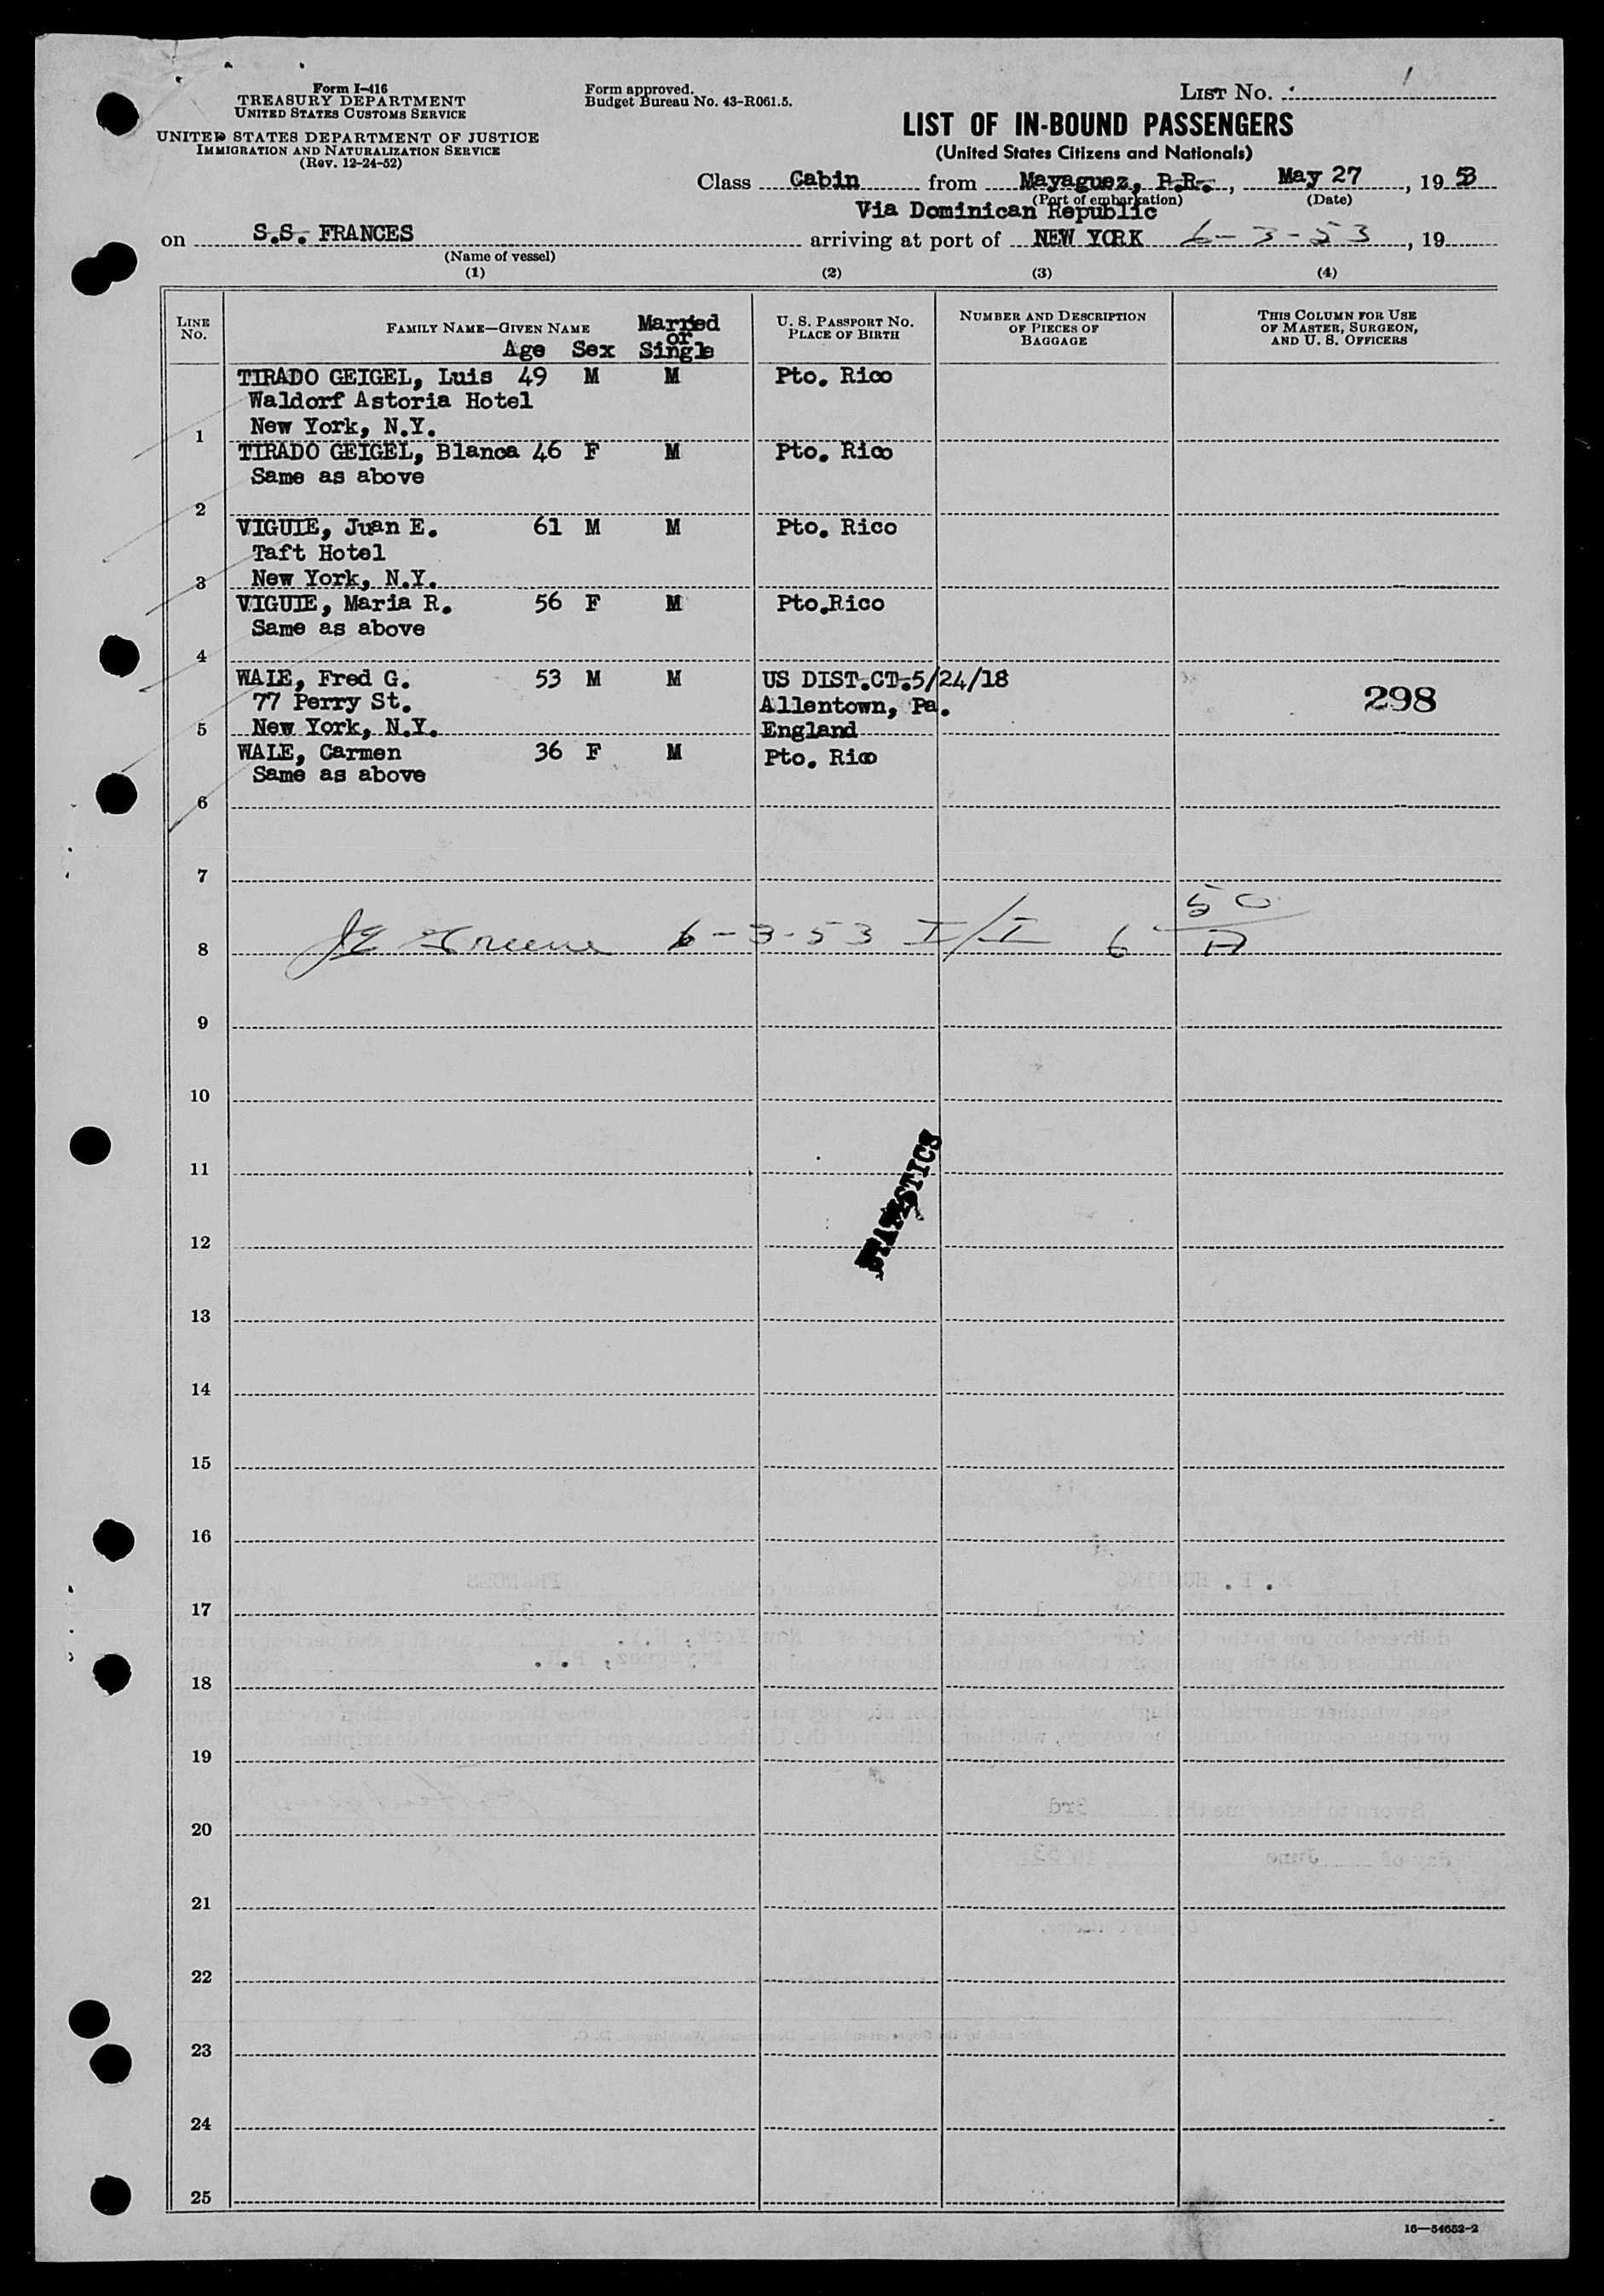 Form I-416
TREASURY DEPARTMENT
UNITED STATES CUSTOMS SERVICE
UNITED STATES DEPARTMENT OF JUSTICE
IMMIGRATION AND NATURALIZATION SERVICE
(Rev. 12-24-52)
Form approved.
Budget Bureau No. 43-R061.5.
LIST NO. 1
LIST OF IN-BOUND PASSENGERS
(United States Citizens and Nationals)
Class Cabin from Mayaguez, P.R., May 27, 1953
(Port of embarkation) (Date)
Via Dominican Republic
on S.S. FRANCES arriving at port of NEW YORK 6-3-53, 19
(Name of vessel)
(1) (2) (3) (4)
LINE NO. FAMILY NAME—GIVEN NAME Age Sex Married or Single U. S. PASSPORT NO. PLACE OF BIRTH NUMBER AND DESCRIPTION OF PIECES OF BAGGAGE THIS COLUMN FOR USE OF MASTER, SURGEON, AND U. S. OFFICERS
TIRADO GEIGEL, Luis 49 M M Pto. Rico
Waldorf Astoria Hotel
1 New York, N.Y.
TIRADO GEIGEL, Blanca 46 F M Pto. Rico
Same as above
2
VIGUIE, Juan E. 61 M M Pto. Rico
Taft Hotel
3 New York, N.Y.
VIGUIE, Maria R. 56 F M Pto.Rico
Same as above
4
WALE, Fred G. 53 M M US DIST.CT.5/24/18
77 Perry St. Allentown, Pa. 298
5 New York, N.Y. England
WALE, Carmen 36 F M Pto. Rico
Same as above
6
7
8 Greene 6-3-53 I/I 6 50
9
10
11
STATISTICS
12
13
14
15
16
17
18
19
20
21
22
23
24
25
16—54652-2